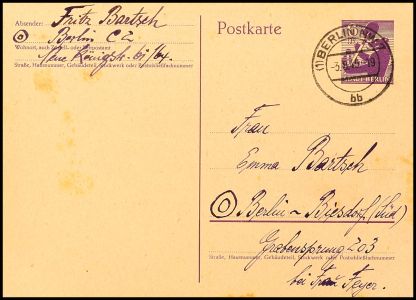 Absender: Fritz Bartsch
Berlin C 2
Wohnort, auch Zustell- oder Leitpostamt
Neue Königstr. 61/64
Straße, Hausnummer, Gebäudeteil, Stockwerk oder Postschließfachnummer
Postkarte
(1) BERLIN
bb
STADT BERLIN
Frau
Emma Bartsch
Berlin-Biesdorf (Süd)
Grabensprung 203
Straße, Hausnummer, Gebäudeteil, Stockwerk oder Postschließfachnummer
bei Frau Feyer.